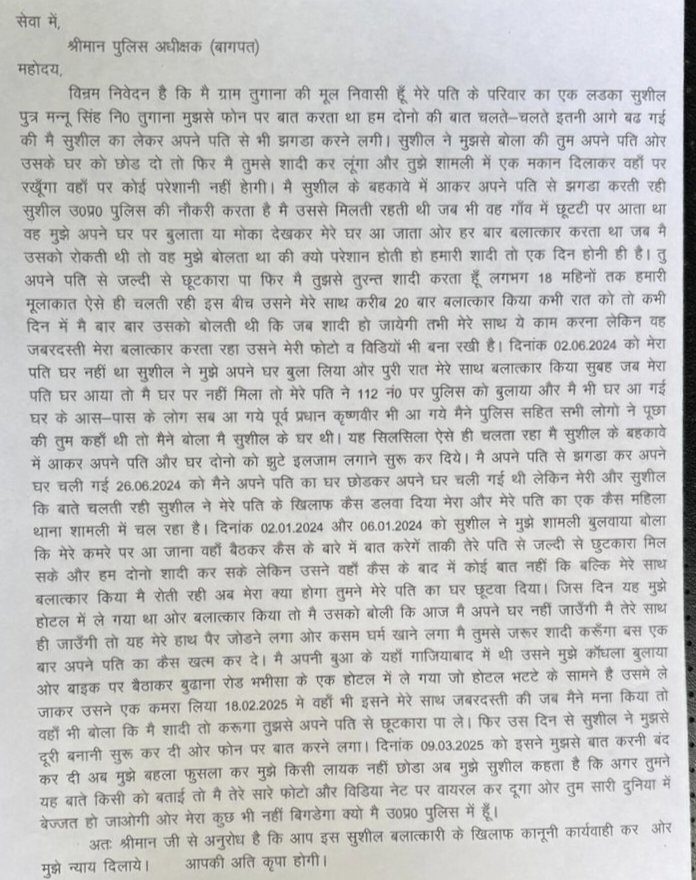 सेवा में,
श्रीमान पुलिस अधीक्षक (बागपत)
महोदय,
विन्रम निवेदन है कि मै ग्राम तुगाना की मूल निवासी हूँ मेरे पति के परिवार का एक लडका सुशील
पुत्र मन्नू सिंह नि0 तुगाना मुझसे फोन पर बात करता था हम दोनो की बात चलते–चलते इतनी आगे बढ गई
की मै सुशील का लेकर अपने पति से भी झगडा करने लगी। सुशील ने मुझसे बोला की तुम अपने पति ओर
उसके घर को छोड दो तो फिर मै तुमसे शादी कर लूंगा और तुझे शामली में एक मकान दिलाकर वहाँ पर
रखूँगा वहाँ पर कोई परेशानी नहीं हेागी। मै सुशील के बहकावे में आकर अपने पति से झगडा करती रही
सुशील उ0प्र0 पुलिस की नौकरी करता है मै उससे मिलती रहती थी जब भी वह गाँव में छूटटी पर आता था
वह मुझे अपने घर पर बुलाता या मोका देखकर मेरे घर आ जाता ओर हर बार बलात्कार करता था जब मै
उसको रोकती थी तो वह मुझे बोलता था की क्यो परेशान होती हो हमारी शादी तो एक दिन होनी ही है। तु
अपने पति से जल्दी से छूटकारा पा फिर मै तुझसे तुरन्त शादी करता हूँ लगभग 18 महिनों तक हमारी
मूलाकात ऐसे ही चलती रही इस बीच उसने मेरे साथ करीब 20 बार बलात्कार किया कभी रात को तो कभी
दिन में मै बार बार उसको बोलती थी कि जब शादी हो जायेगी तभी मेरे साथ ये काम करना लेकिन वह
जबरदस्ती मेरा बलात्कार करता रहा उसने मेरी फोटो व विडियों भी बना रखी है। दिनांक 02.06.2024 को मेरा
पति घर नहीं था सुशील ने मुझे अपने घर बुला लिया ओर पुरी रात मेरे साथ बलात्कार किया सुबह जब मेरा
पति घर आया तो मै घर पर नहीं मिला तो मेरे पति ने 112 नं0 पर पुलिस को बुलाया और मै भी घर आ गई
घर के आस–पास के लोग सब आ गये पूर्व प्रधान कृष्णवीर भी आ गये मैने पुलिस सहित सभी लोगो ने पूछा
की तुम कहाँ थी तो मैने बोला मै सुशील के घर थी। यह सिलसिला ऐसे ही चलता रहा मै सुशील के बहकावे
में आकर अपने पति और घर दोनो को झुटे इलजाम लगाने सुरू कर दिये। मै अपने पति से झगडा कर अपने
घर चली गई 26.06.2024 को मैने अपने पति का घर छोडकर अपने घर चली गई थी लेकिन मेरी और सुशील
कि बाते चलती रही सुशील ने मेरे पति के खिलाफ कैस डलवा दिया मेरा और मेरे पति का एक कैस महिला
थाना शामली में चल रहा है। दिनांक 02.01.2024 और 06.01.2024 को सुशील ने मुझे शामली बुलवाया बोला
कि मेरे कमरे पर आ जाना वहाँ बैठकर कैस के बारे में बात करेगें ताकी तेरे पति से जल्दी से छुटकारा मिल
सके और हम दोनो शादी कर सके लेकिन उसने वहाँ कैस के बाद में कोई बात नहीं कि बल्कि मेरे साथ
बलात्कार किया मै रोती रही अब मेरा क्या होगा तुमने मेरे पति का घर छूटवा दिया। जिस दिन यह मुझे
होटल में ले गया था ओर बलात्कार किया तो मै उसको बोली कि आज मै अपने घर नहीं जाउँगी मै तेरे साथ
ही जाउँगी तो यह मेरे हाथ पैर जोडने लगा ओर कसम घर्म खाने लगा मै तुमसे जरूर शादी करूँगा बस एक
बार अपने पति का कैस खत्म कर दे। मै अपनी बुआ के यहाँ गाजियाबाद में थी उसने मुझे काँधला बुलाया
ओर बाइक पर बैठाकर बुढाना रोड भभीसा के एक होटल में ले गया जो होटल भटटे के सामने है उसमे ले
जाकर उसने एक कमरा लिया 18.02.2025 मे वहाँ भी इसने मेरे साथ जबरदस्ती की जब मैने मना किया तो
वहाँ भी बोला कि मै शादी तो करूगा तुझसे अपने पति से छूटकारा पा ले। फिर उस दिन से सुशील ने मुझसे
दूरी बनानी सुरू कर दी ओर फोन पर बात करने लगा। दिनांक 09.03.2025 को इसने मुझसे बात करनी बंद
कर दी अब मुझे बहला फुसला कर मुझे किसी लायक नहीं छोडा अब मुझे सुशील कहता है कि अगर तुमने
यह बाते किसी को बताई तो मै तेरे सारे फोटो और विडिया नेट पर वायरल कर दूगा ओर तुम सारी दुनिया में
बेज्जत हो जाओगी ओर मेरा कुछ भी नहीं बिगडेगा क्यो मै उ0प्र0 पुलिस में हूँ।
अतः श्रीमान जी से अनुरोध है कि आप इस सुशील बलात्कारी के खिलाफ कानूनी कार्यवाही कर ओर
मुझे न्याय दिलाये। आपकी अति कृपा होगी।